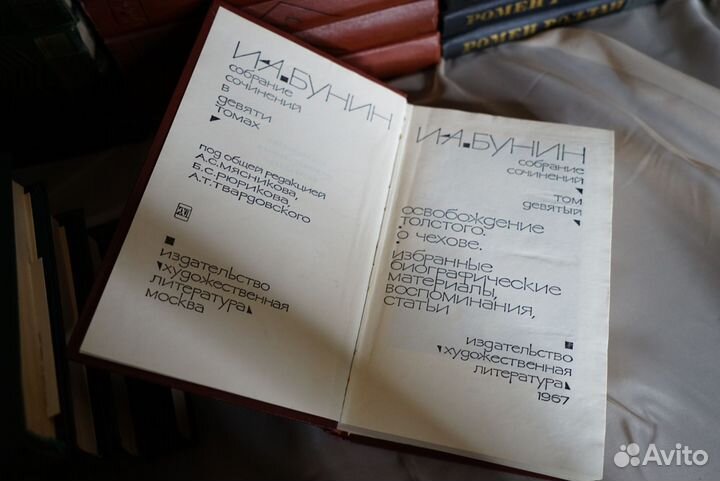 РОМЕН РОЛЛАН
РОМЕН РОЛЛАН
И·А·БУНИН
собрание
сочинений
в
девяти
томах
под общей редакцией
А.С.Мясникова,
Б.С.Рюрикова,
А.Т.Твардовского
издательство
художественная
литература
москва
И·А·БУНИН
собрание
сочинений
том
девятый
освобождение
толстого.
о чехове.
избранные
биографические
материалы,
воспоминания,
статьи
издательство
художественная
литература
1967
Avito